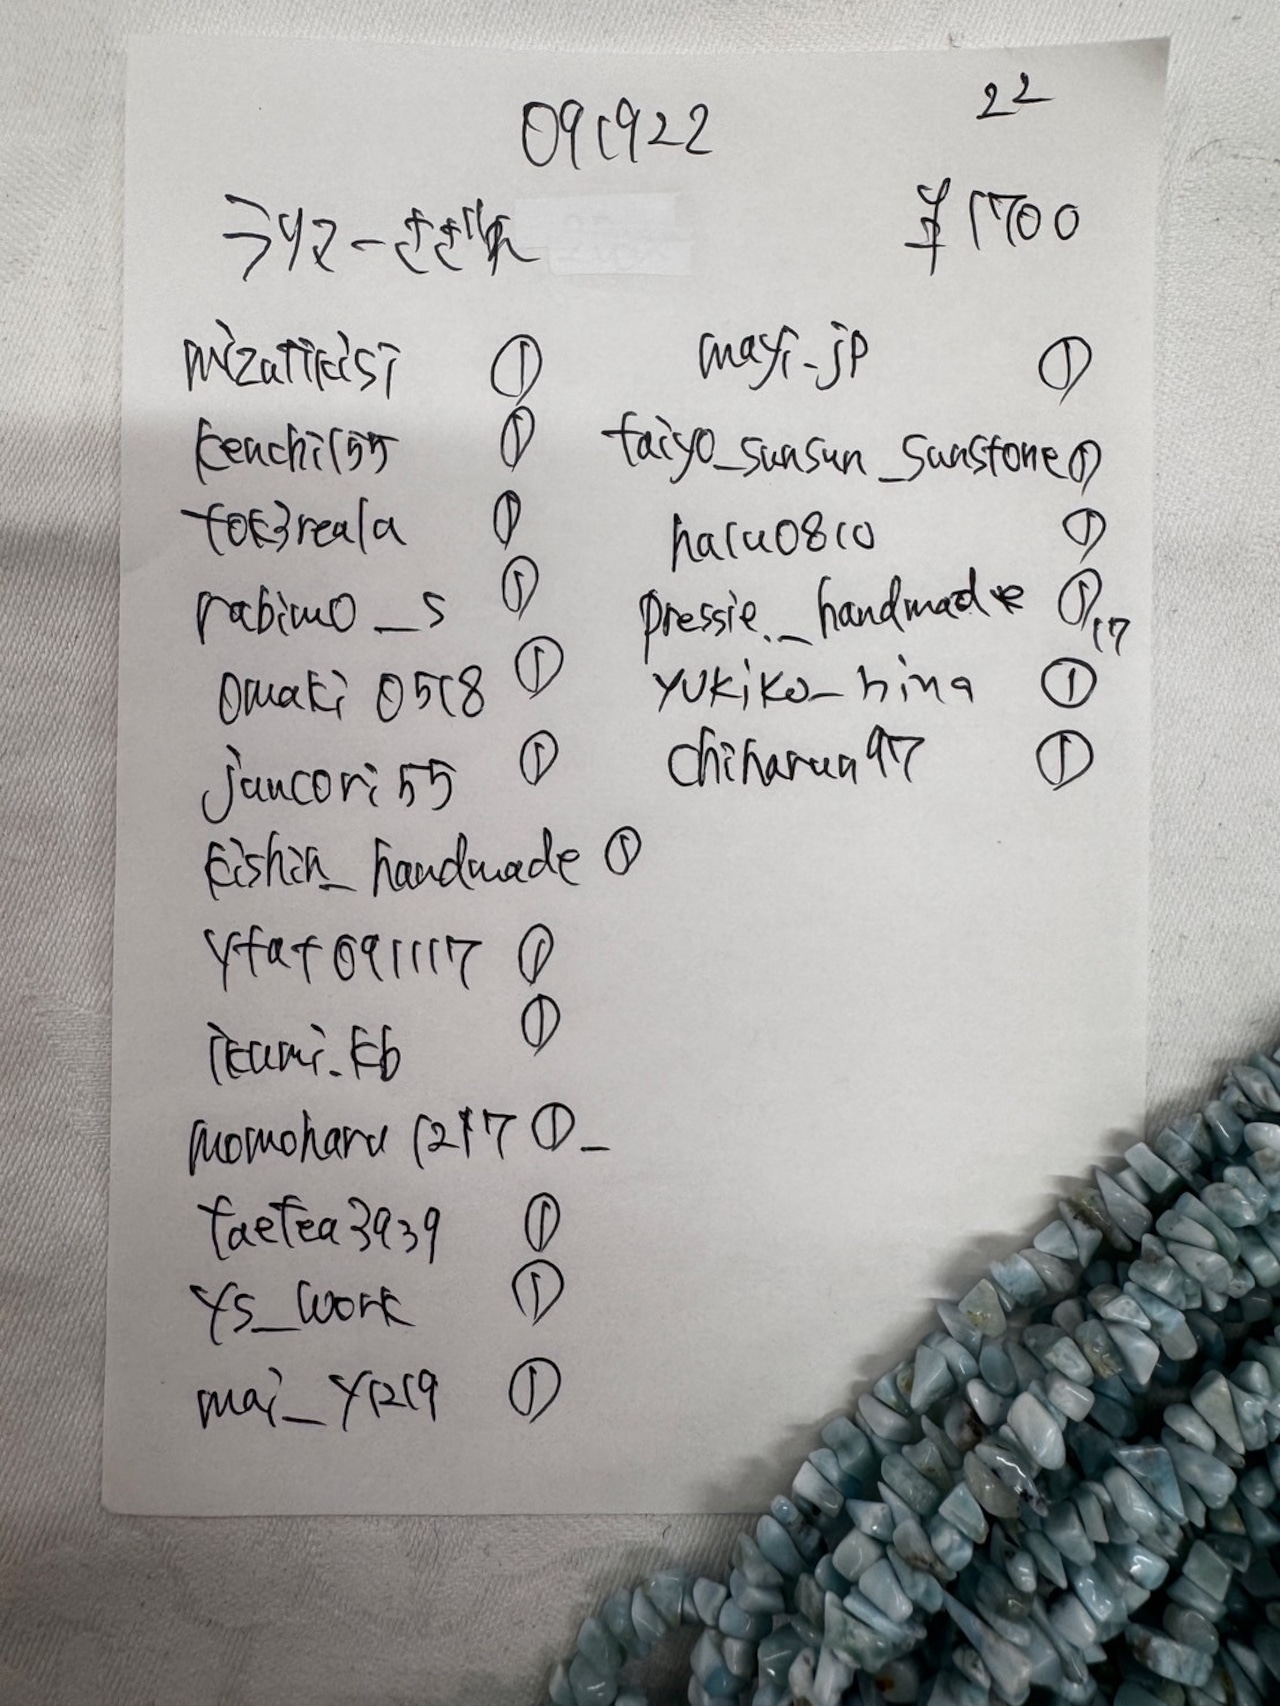 091922
22
ラリマーさざれ
¥1700
mizutikisi ①
kenchi155 ①
tok3reala ①
rabimo_s ①
omaki 0518 ①
juncori55 ①
kishin_handmade ①
ytat091117 ①
ikumi.kb ①
momoharu 1217 ①_
taetea3939 ①
ys_work ①
mai_y1219 ①
mayi-jp ①
taiyo_sunsun_sunstone ①
haru0810 ①
pressie._handmade ①,17
yukiko_hina ①
chiharun97 ①